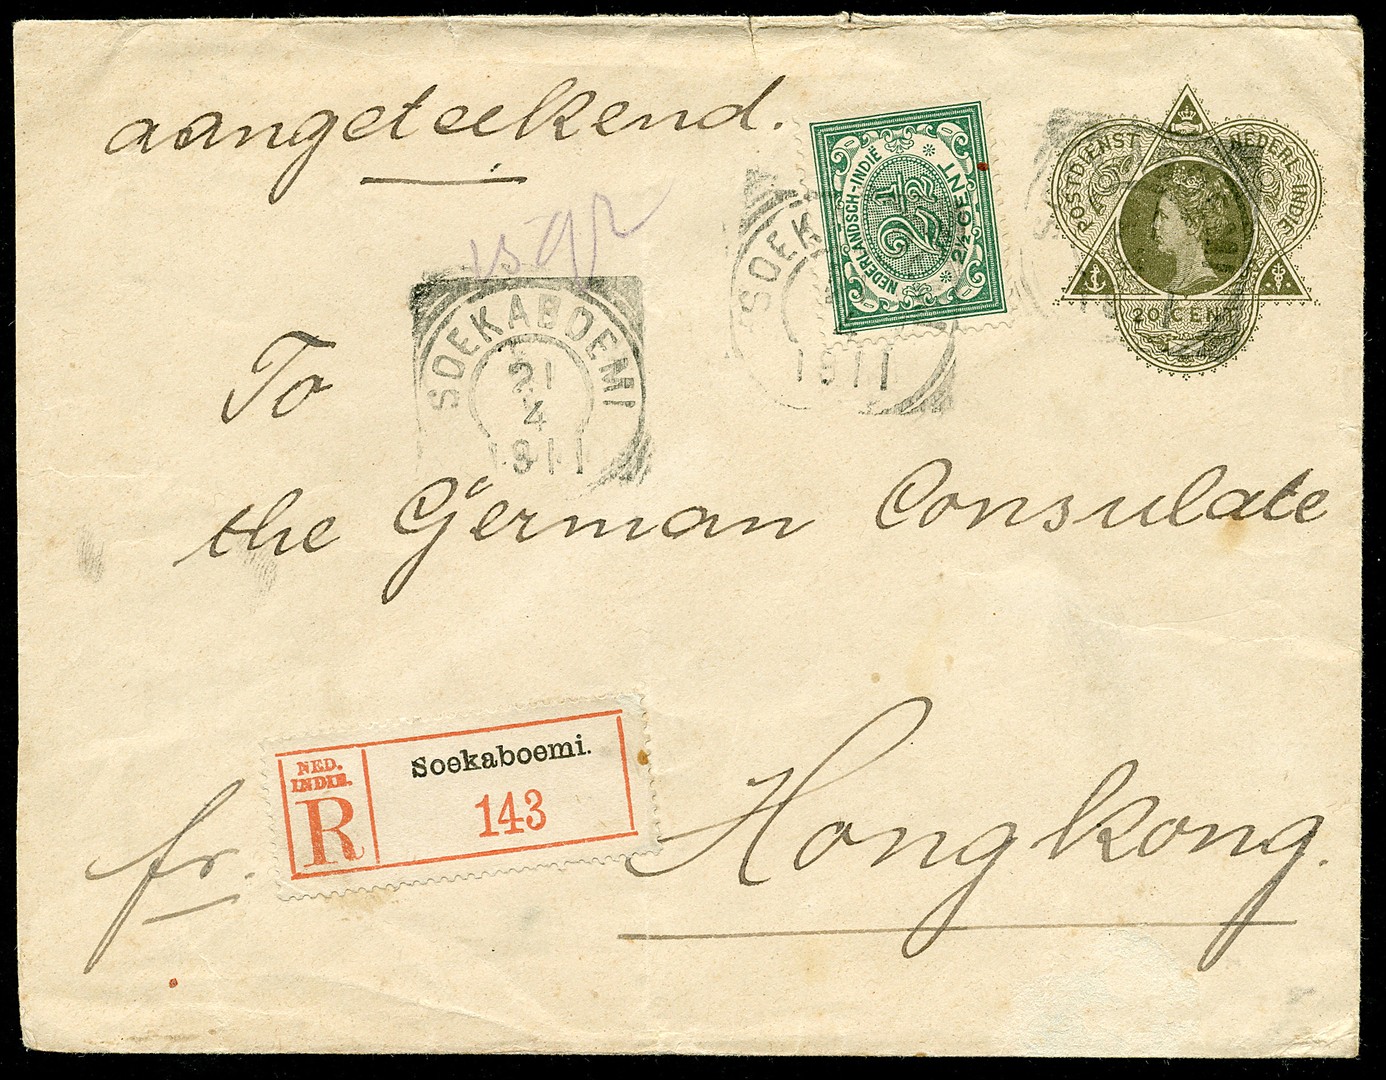 aangeteekend.
NEDERLANDSCH-INDIË
2½
2½ CENT
POSTDIENST
NEDERL-INDIE
20 CENT
15 gr
SOEKABOEMI
21
4
1911
SOEK
1911
To
the German Consulate
NED.
INDIE.
R
Soekaboemi.
143
fr.
Hongkong.